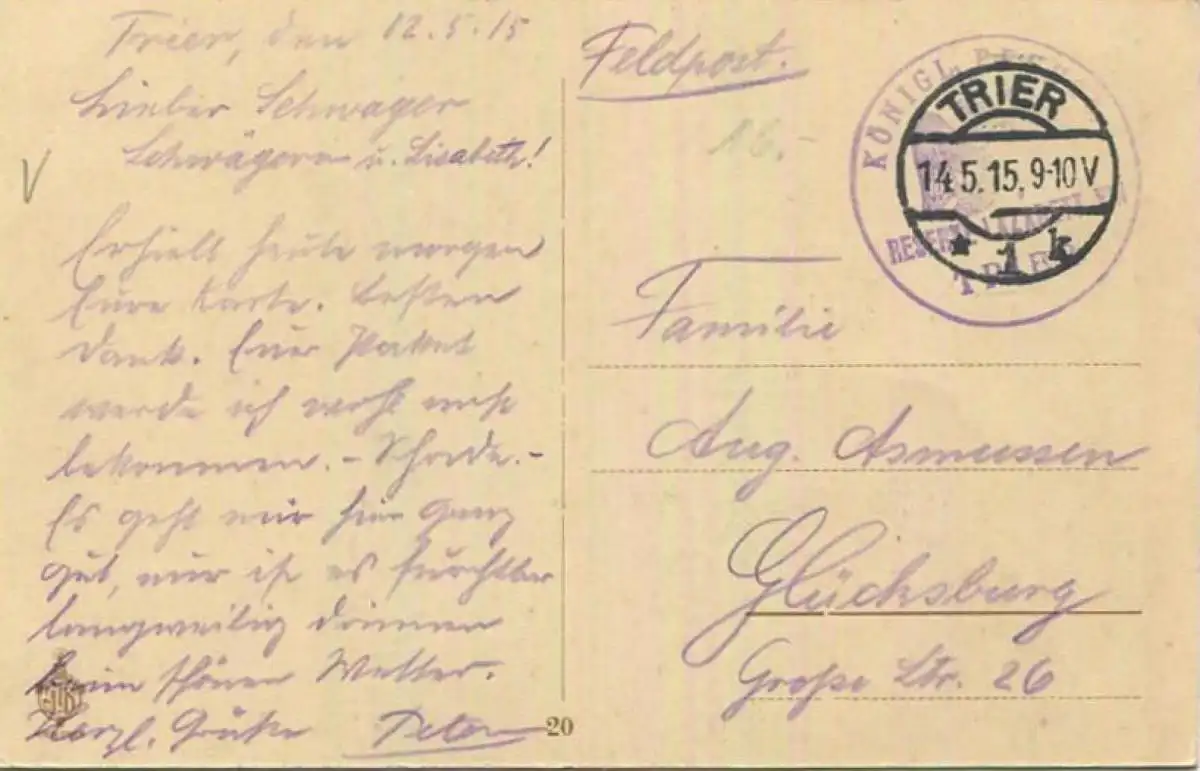 Trier, den 12.5.15
Lieber Schwager
Schwägerin u. Lisabeth!
Erhielt heute morgen
Eure Karte. Besten
Dank. Euer Paket
werde ich wohl nicht
bekommen. - Schade. -
Es geht mir hier ganz
gut, nur ist es furchtbar
langweilig drinnen
beim schönen Wetter.
Herzl. Grüße Peter
20
Feldpost.
16.-
KÖNIGL.
TRIER
TRIER
14.5.15. 9-10 V
* 1 k
Familie
Aug. Asmussen
Glücksburg
Große Str. 26